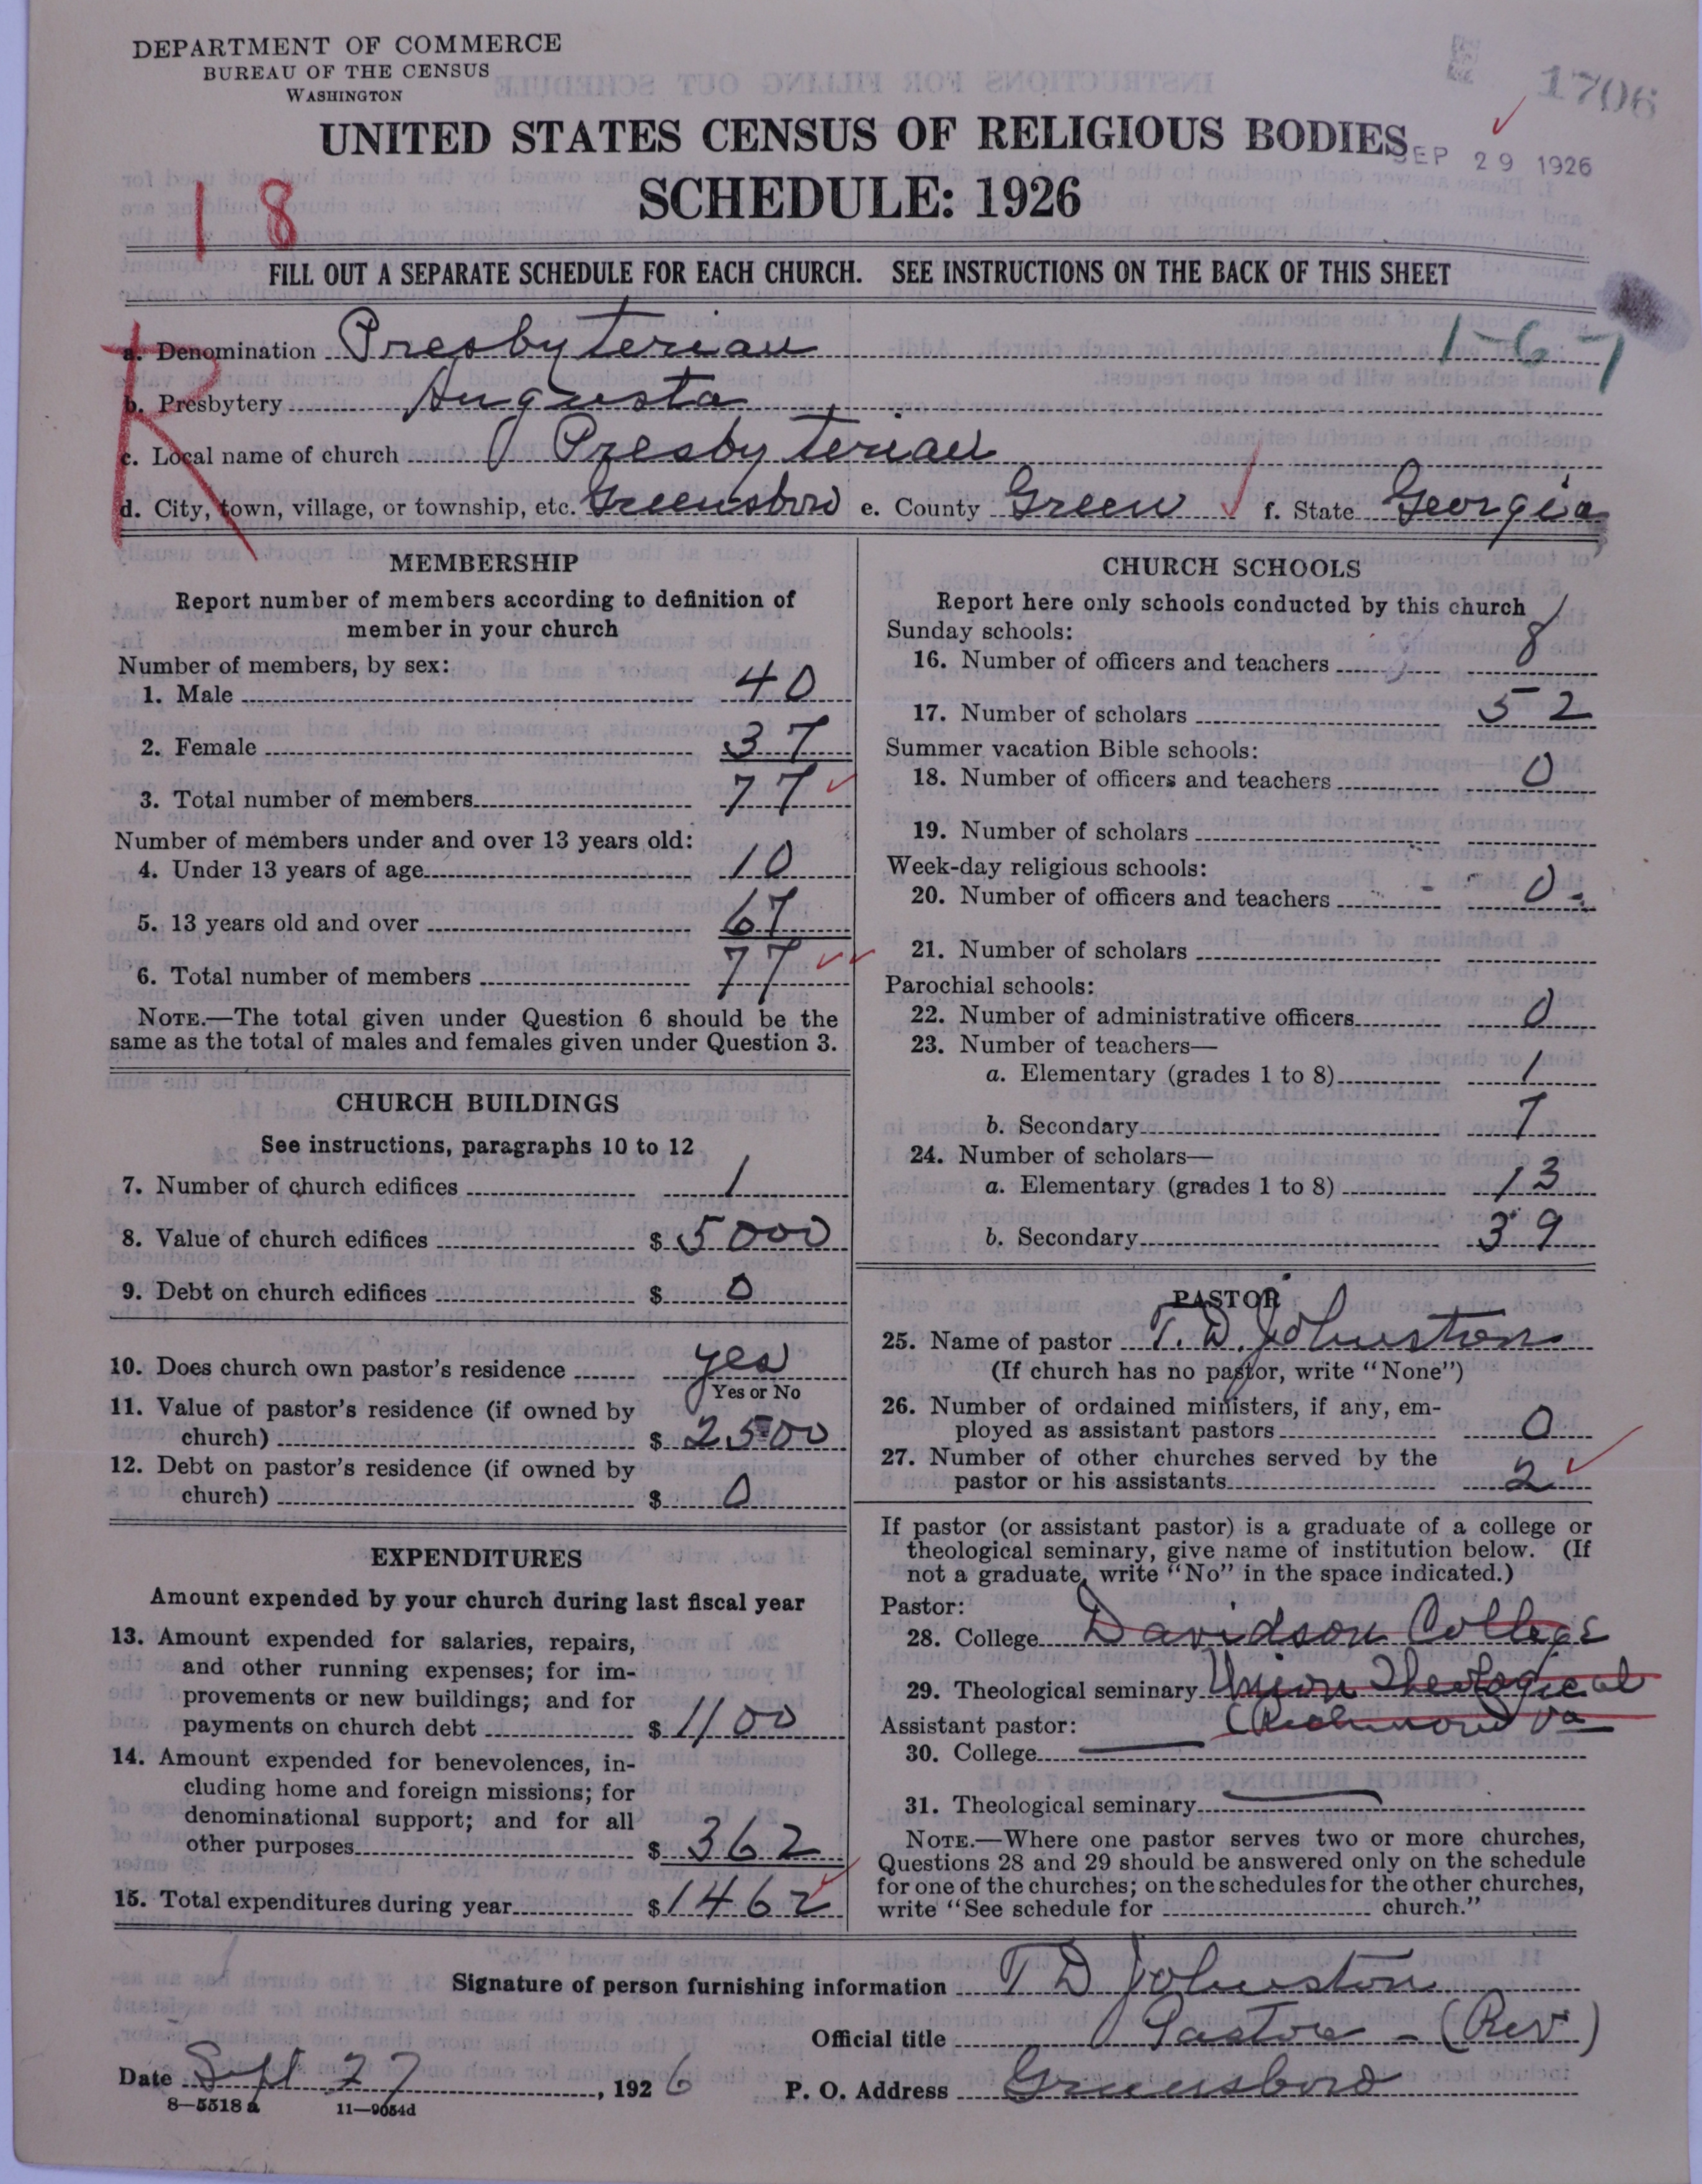 DEPARTMENT OF COMMERCE
BUREAU OF THE CENSUS
WASHINGTON
1706
UNITED STATES CENSUS OF RELIGIOUS BODIES
SEP 29 1926
SCHEDULE: 1926
18
FILL OUT A SEPARATE SCHEDULE FOR EACH CHURCH. SEE INSTRUCTIONS ON THE BACK OF THIS SHEET
R
a. Denomination Presbyterian 1-67
b. Presbytery Augusta
c. Local name of church Presbyterian
d. City, town, village, or township, etc. Greensboro e. County Green f. State Georgia
MEMBERSHIP
Report number of members according to definition of
member in your church
Number of members, by sex:
1. Male 40
2. Female 37
3. Total number of members 77
Number of members under and over 13 years old:
4. Under 13 years of age 10
5. 13 years old and over 67
6. Total number of members 77
NOTE.—The total given under Question 6 should be the
same as the total of males and females given under Question 3.
CHURCH BUILDINGS
See instructions, paragraphs 10 to 12
7. Number of church edifices 1
8. Value of church edifices $ 5000
9. Debt on church edifices $ 0
10. Does church own pastor's residence yes
Yes or No
11. Value of pastor's residence (if owned by
church) $ 2500
12. Debt on pastor's residence (if owned by
church) $ 0
EXPENDITURES
Amount expended by your church during last fiscal year
13. Amount expended for salaries, repairs,
and other running expenses; for im-
provements or new buildings; and for
payments on church debt $ 1100
14. Amount expended for benevolences, in-
cluding home and foreign missions; for
denominational support; and for all
other purposes $ 362
15. Total expenditures during year $ 1462
CHURCH SCHOOLS
Report here only schools conducted by this church
Sunday schools:
16. Number of officers and teachers 8
17. Number of scholars 52
Summer vacation Bible schools:
18. Number of officers and teachers 0
19. Number of scholars
Week-day religious schools:
20. Number of officers and teachers 0
21. Number of scholars
Parochial schools:
22. Number of administrative officers 0
23. Number of teachers—
a. Elementary (grades 1 to 8) 1
b. Secondary 7
24. Number of scholars—
a. Elementary (grades 1 to 8) 13
b. Secondary 39
PASTOR
25. Name of pastor T. D. Johnston
(If church has no pastor, write "None")
26. Number of ordained ministers, if any, em-
ployed as assistant pastors 0
27. Number of other churches served by the
pastor or his assistants 2
If pastor (or assistant pastor) is a graduate of a college or
theological seminary, give name of institution below. (If
not a graduate, write "No" in the space indicated.)
Pastor:
28. College Davidson College
29. Theological seminary Union Theological
Assistant pastor: (Richmond Va
30. College
31. Theological seminary
NOTE.—Where one pastor serves two or more churches,
Questions 28 and 29 should be answered only on the schedule
for one of the churches; on the schedules for the other churches,
write "See schedule for church."
Signature of person furnishing information T D Johnston
Official title Pastor - (Rev)
Date Sept 27, 1926 P. O. Address Greensboro
8—5518a 11—9054d